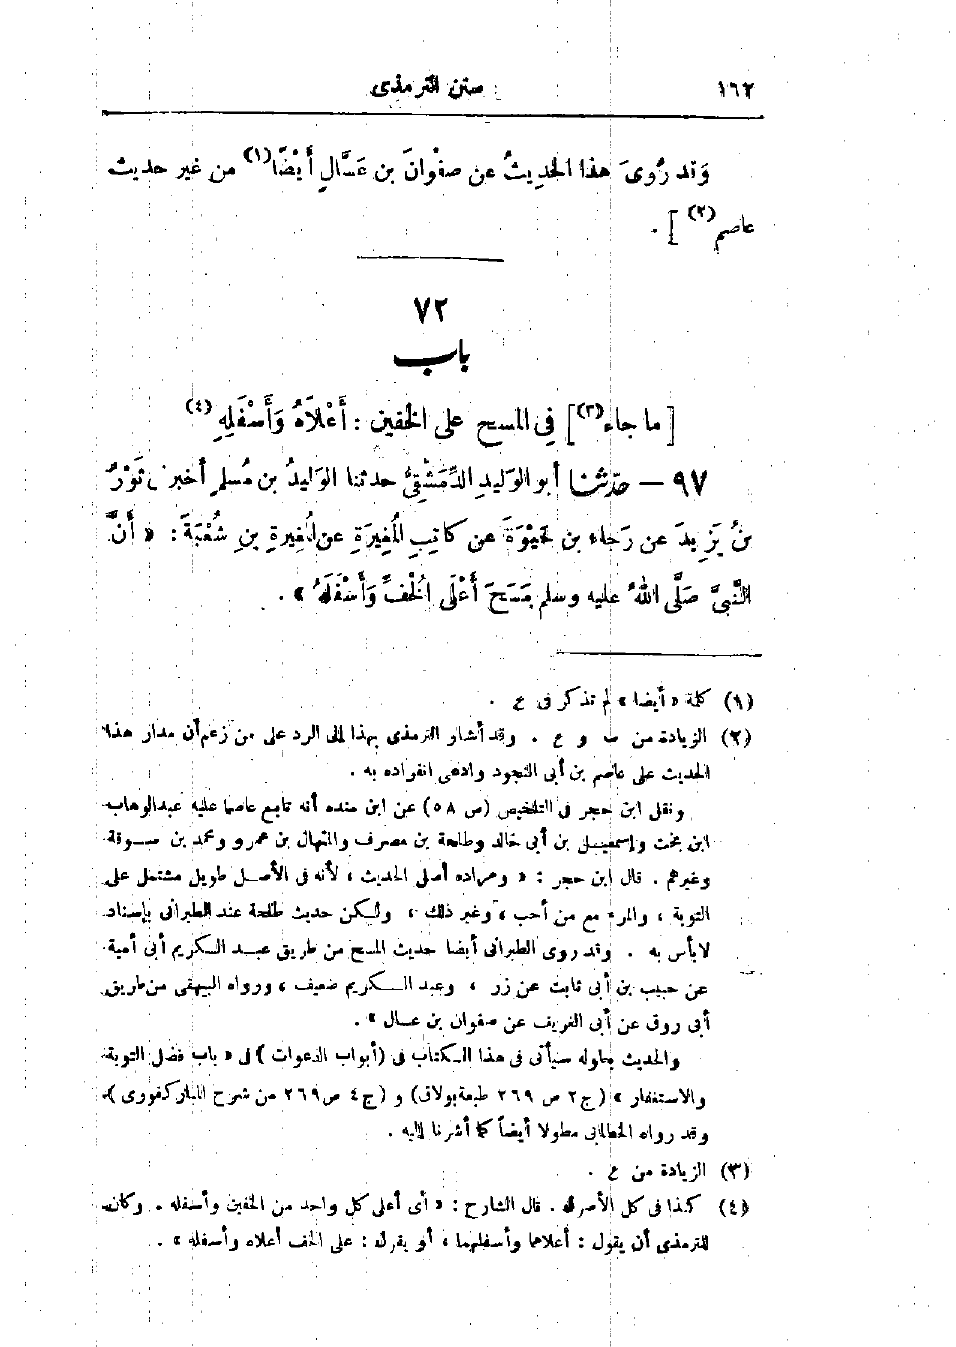 ١٦٢ سنن الترمذى
وَقد رُوِىَ هذا الحَدِيثُ عن صفْوانَ بن عَسَّالٍ أَيْضًا(١) من غير حديث
عاصم(٢)] .
٧٢
باب
[ما جاء(٣)] فِى المسح على الخفين : أَعْلَاهُ وَأَسْفَلِهِ(٤)
٩٧ — حدّثنا أبو الوَليدِ الدِّمَشْقِىُّ حدثنا الوَليدُ بن مُسلمٍ أخبرنى ثَوْرُ
بنُ يَزِيدَ عن رَجَاء بن حَيْوَةَ عن كاتِبِ المُغِيرَةِ عن المُغِيرةِ بنِ شُعْبَةَ : « أَنَّ
النَّبِىَّ صَلَّى اللهُ عليه وسلم مَسَحَ أَعْلَى الْخُفِّ وَأَسْفَلَهُ » .
(١) كلمة « أيضا » لم تذكر فى ع .
(٢) الزيادة من ب و ع . وقد أشار الترمذى بهذا إلى الرد على من زعم أن مدار هذا
الحديث على عاصم بن أبى النجود وادعى انفراده به .
ونقل ابن حجر فى التلخيص (ص ٥٨) عن ابن منده أنه تابع عاصما عليه عبدالوهاب
ابن بخت وإسمعيل بن أبى خالد وطلحة بن مصرف والمنهال بن عمرو ومحمد بن سوقة
وغيرهم . قال ابن حجر : « ومراده أصل الحديث ، لأنه فى الأصل طويل مشتمل على
التوبة ، والمرء مع من أحب ، وغير ذلك ، ولكن حديث طلحة عند الطبرانى بإسناد
لابأس به . وقد روى الطبرانى أيضا حديث المسح من طريق عبد الكريم أبى أمية
عن حبيب بن أبى ثابت عن زر ، وعبد الكريم ضعيف ، ورواه البيهقى من طريق
أبى روق عن أبى الغريف عن صفوان بن عسال » .
والحديث بطوله سيأتى فى هذا الكتاب فى (أبواب الدعوات) فى « باب فضل التوبة
والاستغفار » (ج٢ ص ٢٦٩ طبعة بولاق) و (ج٤ ص ٢٦٩ من شرح المباركفورى).
وقد رواه الخطابى مطولا أيضاً كما أشرنا إليه .
(٣) الزيادة من ع .
(٤) كذا فى كل الأصول . قال الشارح : « أى أعلى كل واحد من الخفين وأسفله . وكان
للترمذى أن يقول : أعلاهما وأسفلهما ، أو يقول : على الخف أعلاه وأسفله » .